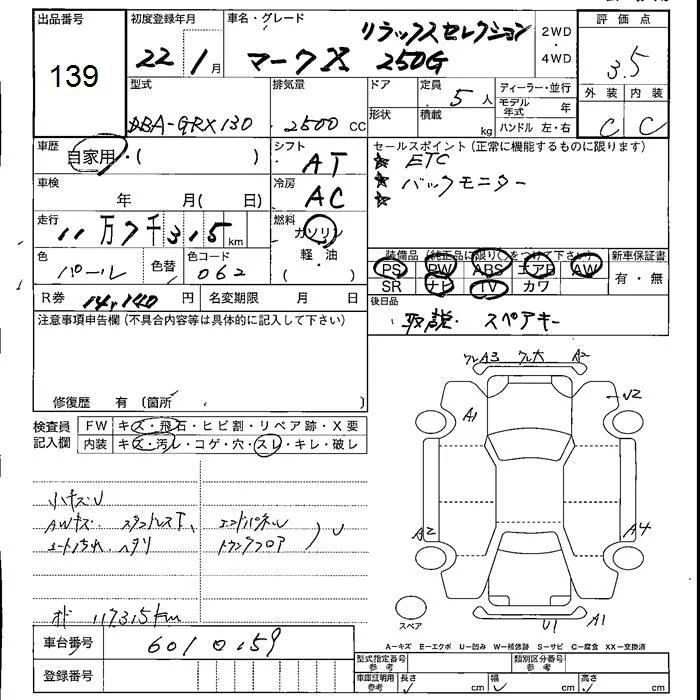 出品番号 初度登録年月 車名・グレード リラックスセレクション 2WD・4WD 評価点
139 22年1月 マークX 250G 3.5
型式 排気量 ドア 定員 5人 ディーラー・並行 外装 内装
DBA-GRX130 2500cc 形状 積載 kg モデル年式 年 C C
ハンドル 左・右
車歴 自家用・( ) シフト AT セールスポイント(正常に機能するものに限ります)
☆ ETC
車検 年 月(日) 冷房 AC ☆ バックモニター
☆
走行 11万7千315km 燃料 ガソリン 軽・油 ( )
装備品(純正品に限り○をつけて下さい) 新車保証書
色 パール 色替 色コード 062 PS PW ABS エアB AW 有・無
SR ナビ TV カワ
R券 14,140円 名変期限 月 日 後日品
取説・スペアキー
注意事項申告欄(不具合内容等は具体的に記入して下さい)
修復歴 有(箇所 )
検査員記入欄 FW キズ・飛石・ヒビ割・リペア跡・X要
内装 キズ・汚レ・コゲ・穴・スレ・キレ・破レ
A3 ワレ大 A2
A1 U2
A2 A4
小キズU
AWキズ エンドパネル U
シートよごれ ヘタリ トランクフロア
オド 117315km
スペア U1 A1
A−キズ E−エクボ U−凹み W−補修跡 S−サビ C−腐食 XX−交換済
車台番号 6010159
型式指定番号 参考 類別区分番号 参考
登録番号 車庫証明用 参考 長さ cm 幅 cm 高さ cm